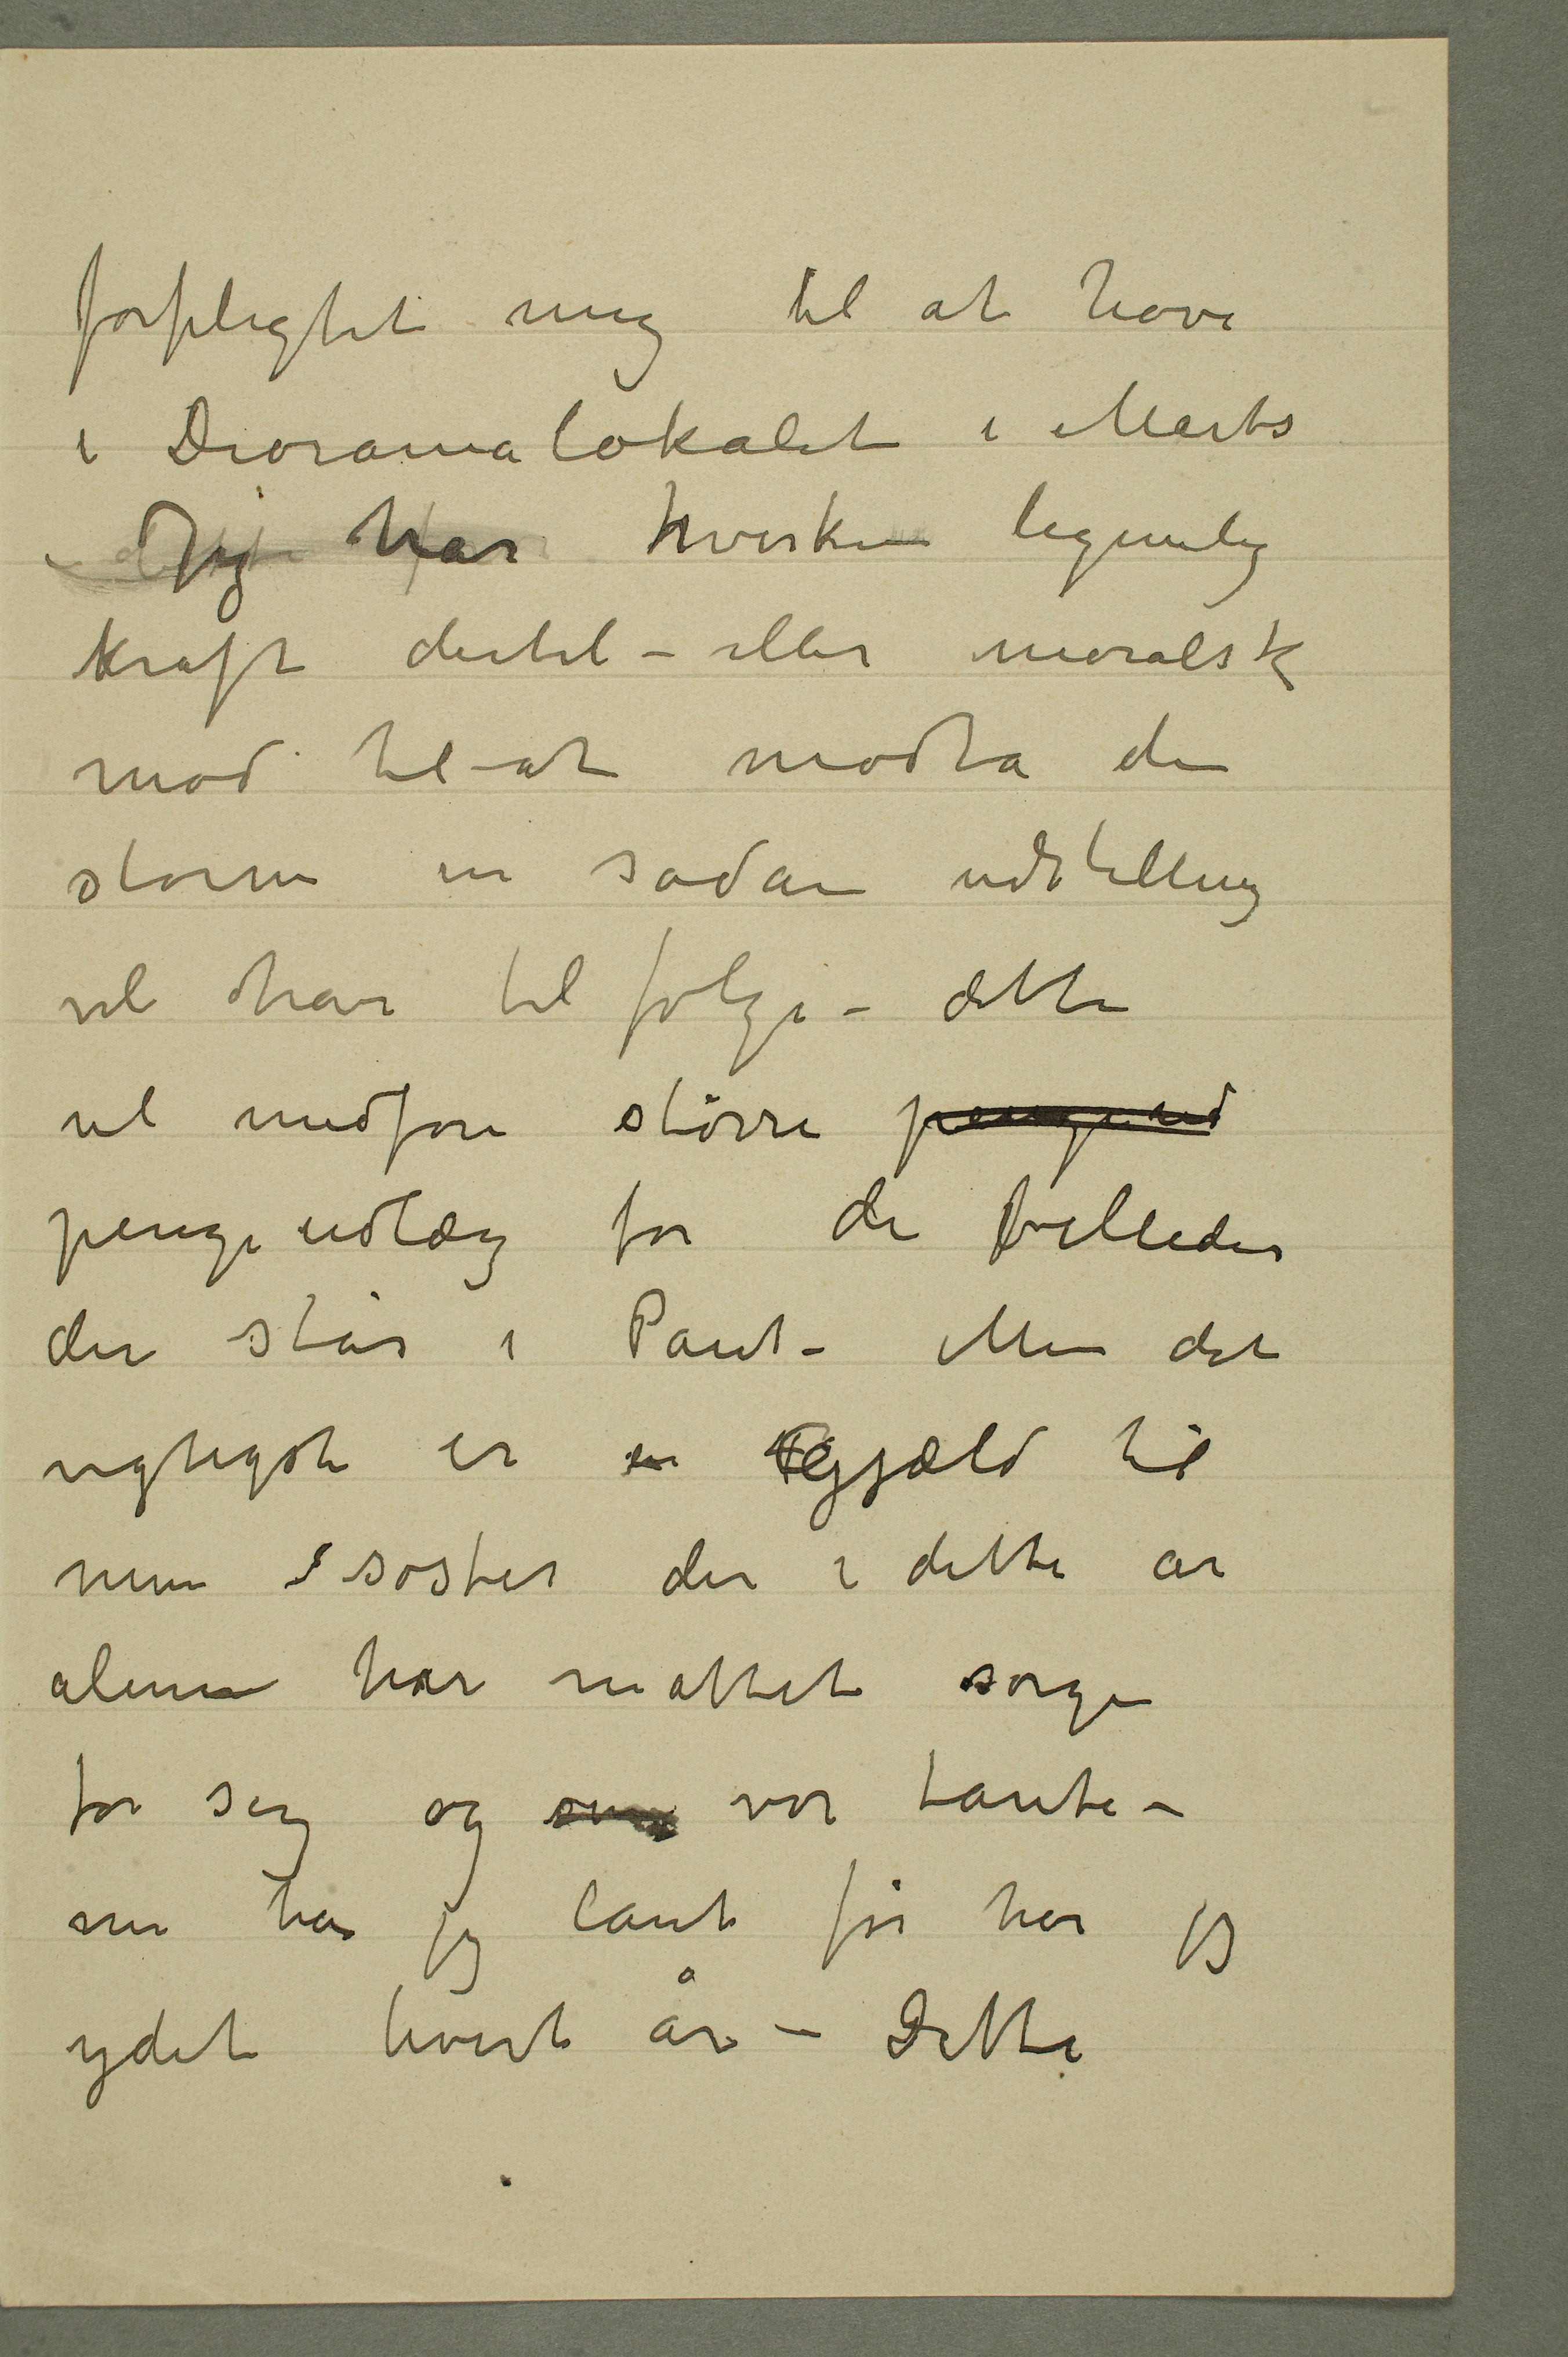 forpligtet mig til at have
i Dioramalokalet i Marts
– Jeg har hverken legemlig
kraft dertil – eller moralsk
mod til – at modta den
storm en sadan udstilling
vil have til følge – dette
vil medføre större pengeud
pengeudlæg for de billeder
der står i Pant – Men det
vigtigste er en gjæld til
min s søster der i dette ar
alene har måttet sørge
for seg og vor tante –
nu har jeg lånt för har jeg
ydet hvert år – Dette